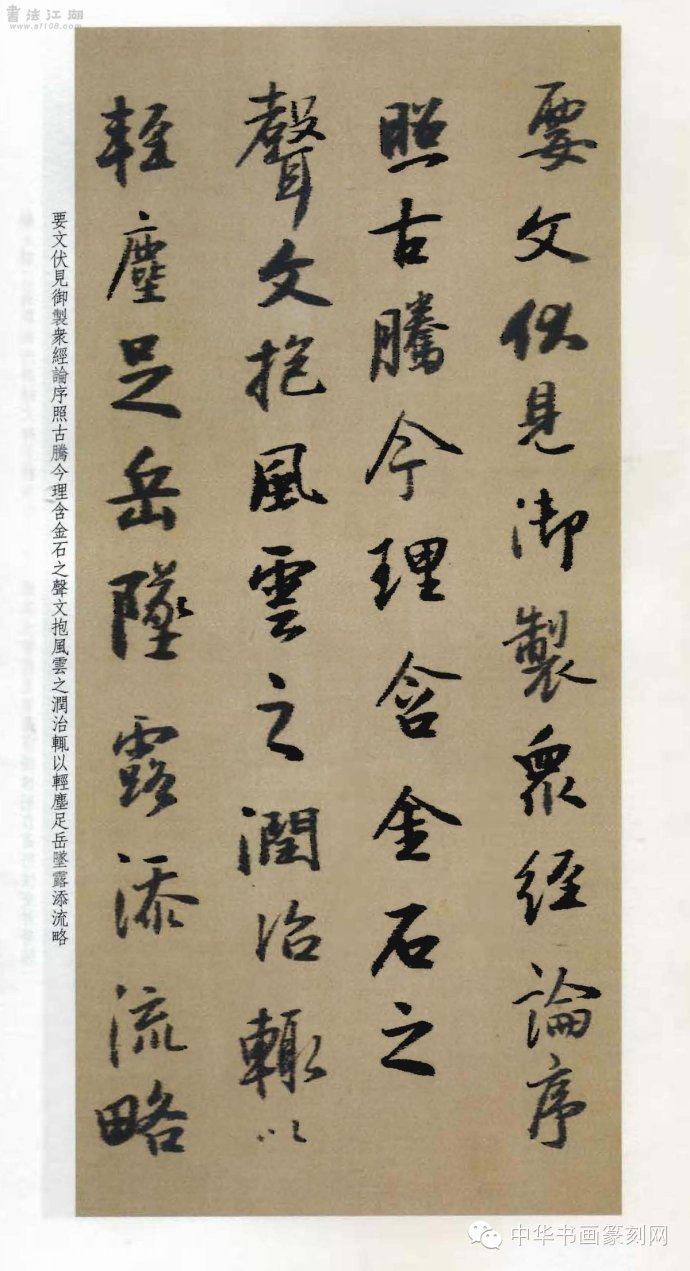 書法江湖
www.sf108.com
要文伏見御製衆經論序
照古騰今理含金石之
聲文抱風雲之潤治輒以
輕塵足岳墜露添流略
要文伏見御製衆經論序照古騰今理含金石之聲文抱風雲之潤治輒以輕塵足岳墜露添流略
中华书画篆刻网